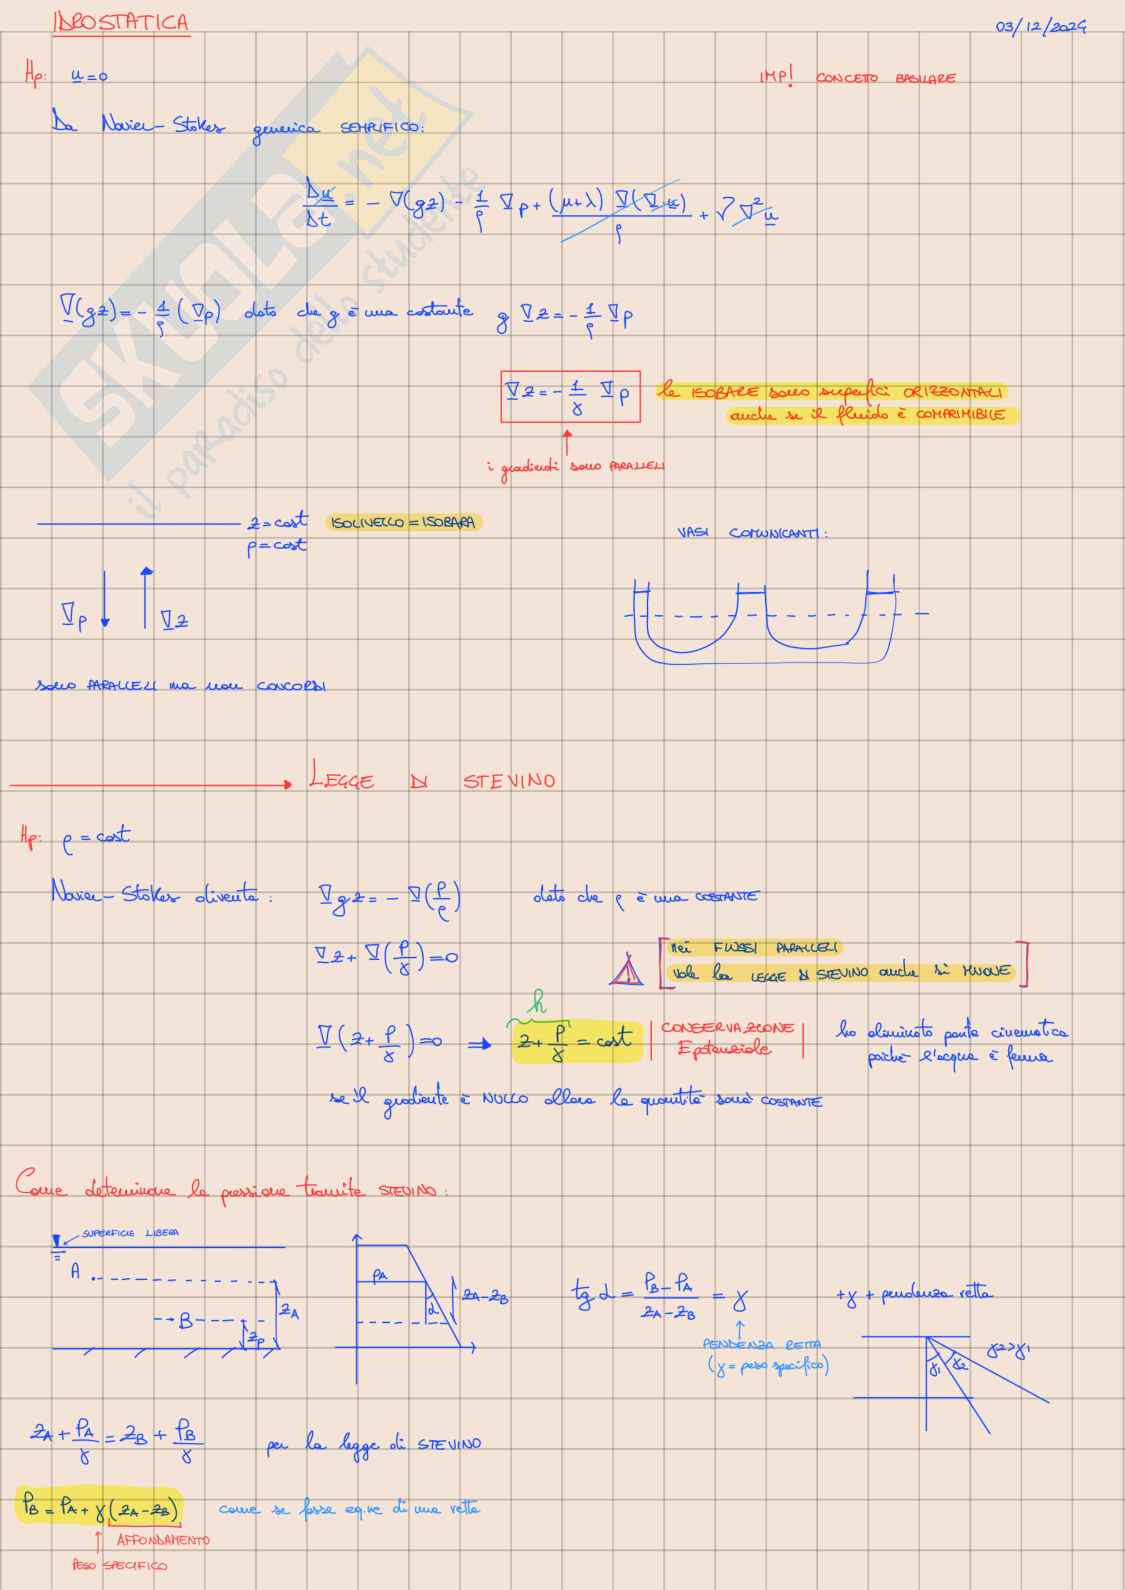 IDROSTATICA
03/12/2024
Hp: u=0
IMP! CONCETO BASILARE
Da Navier-Stokes generica SEMPLIFICO:
Du/Dt = - ∇(gz) - 1/ρ ∇p + (μ+λ) ∇(∇·u)/ρ + ν∇²u
∇(gz) = - 1/ρ (∇p) dato che g è una costante g ∇z = - 1/ρ ∇p
∇z = - 1/γ ∇p
le ISOBARE sono superfici ORIZZONTALI
anche se il fluido è COMPRIMIBILE
i gradienti sono PARALLELI
z=cost ISOLIVELLO = ISOBARA
p=cost
VASI COMUNICANTI:
∇p ∇z
sono PARALLELI ma non CONCORDI
LEGGE DI STEVINO
Hp: ρ = cost
Navier-Stokes diventa: ∇gz = - ∇(p/ρ) dato che ρ è una COSTANTE
∇z + ∇(p/γ) = 0
Nei FLUSSI PARALLELI
vale la LEGGE DI STEVINO anche si MUOVE
h
∇(z + p/γ) = 0 ⇒ z + p/γ = cost
CONSERVAZIONE
E potenziale
ho eliminato parte cinematica
poiché l'acqua è ferma
se il gradiente è NULLO allora la quantità sarà COSTANTE
Come determinare la pressione tramite STEVINO:
SUPERFICIE LIBERA
A
B
zA
zp
pA
α
zA-zB
tg α = (pB - pA)/(zA - zB) = γ
PENDENZA RETTA
(γ = peso specifico)
+γ + pendenza retta
γ1 γ2
γ2>γ1
zA + pA/γ = zB + pB/γ per la legge di STEVINO
pB = pA + γ (zA - zB) come se fosse eq.ne di una retta
AFFONDAMENTO
PESO SPECIFICO
SKUOLA.net
il paradiso dello studente